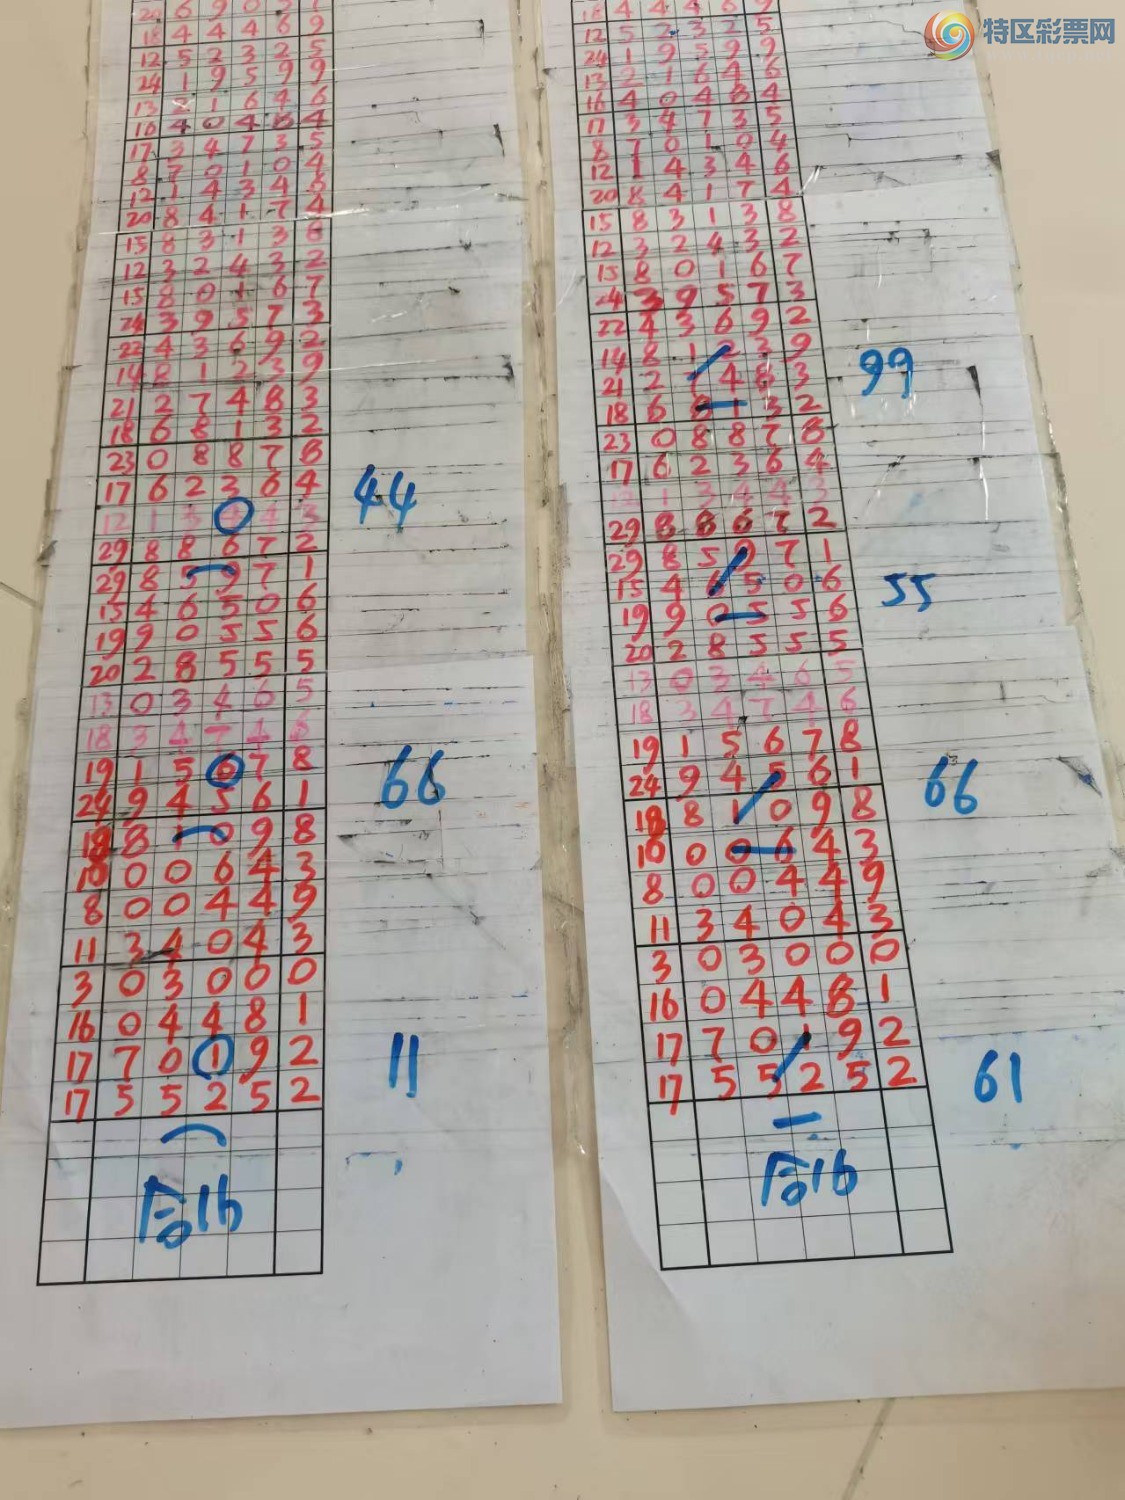 特区彩票网
18 4 4 4 6 9
12 5 2 3 2 5
24 1 9 5 9 9
13 2 1 6 4 6
16 4 0 4 8 4
17 3 4 7 3 5
8 7 0 1 0 4
12 1 4 3 4 6
20 8 4 1 7 4
15 8 3 1 3 8
12 3 2 4 3 2
15 8 0 1 6 7
24 3 9 5 7 3
22 4 3 6 9 2
14 8 1 2 3 9
21 2 7 4 8 3
18 6 8 1 3 2
23 0 8 8 7 8
17 6 2 3 6 4
44
12 1 3 4 4 3
29 8 8 6 7 2
29 8 5 9 7 1
15 4 6 5 0 6
19 9 0 5 5 6
20 2 8 5 5 5
13 0 3 4 6 5
18 3 4 7 4 6
19 1 5 6 7 8
66
24 9 4 5 6 1
18 8 0 9 8
10 0 0 6 4 3
8 0 0 4 4 9
11 3 4 0 4 3
3 0 3 0 0 0
16 0 4 4 8 1
17 7 0 1 9 2
11
17 5 5 2 5 2
合16
18 4 4 4 6 9
12 5 2 3 2 5
24 1 9 5 9 9
13 2 1 6 4 6
16 4 0 4 8 4
17 3 4 7 3 5
8 7 0 1 0 4
12 1 4 3 4 6
20 8 4 1 7 4
15 8 3 1 3 8
12 3 2 4 3 2
15 8 0 1 6 7
24 3 9 5 7 3
22 4 3 6 9 2
14 8 1 2 3 9
99
21 2 7 4 8 3
18 6 8 1 3 2
23 0 8 8 7 8
17 6 2 3 6 4
12 1 3 4 4 3
29 8 8 6 7 2
29 8 5 9 7 1
15 4 6 5 0 6
55
19 9 0 5 5 6
20 2 8 5 5 5
13 0 3 4 6 5
18 3 4 7 4 6
19 1 5 6 7 8
24 9 4 5 6 1
66
18 8 1 0 9 8
10 0 0 6 4 3
8 0 0 4 4 9
11 3 4 0 4 3
3 0 3 0 0 0
16 0 4 4 8 1
17 7 0 1 9 2
17 5 5 2 5 2
61
合16